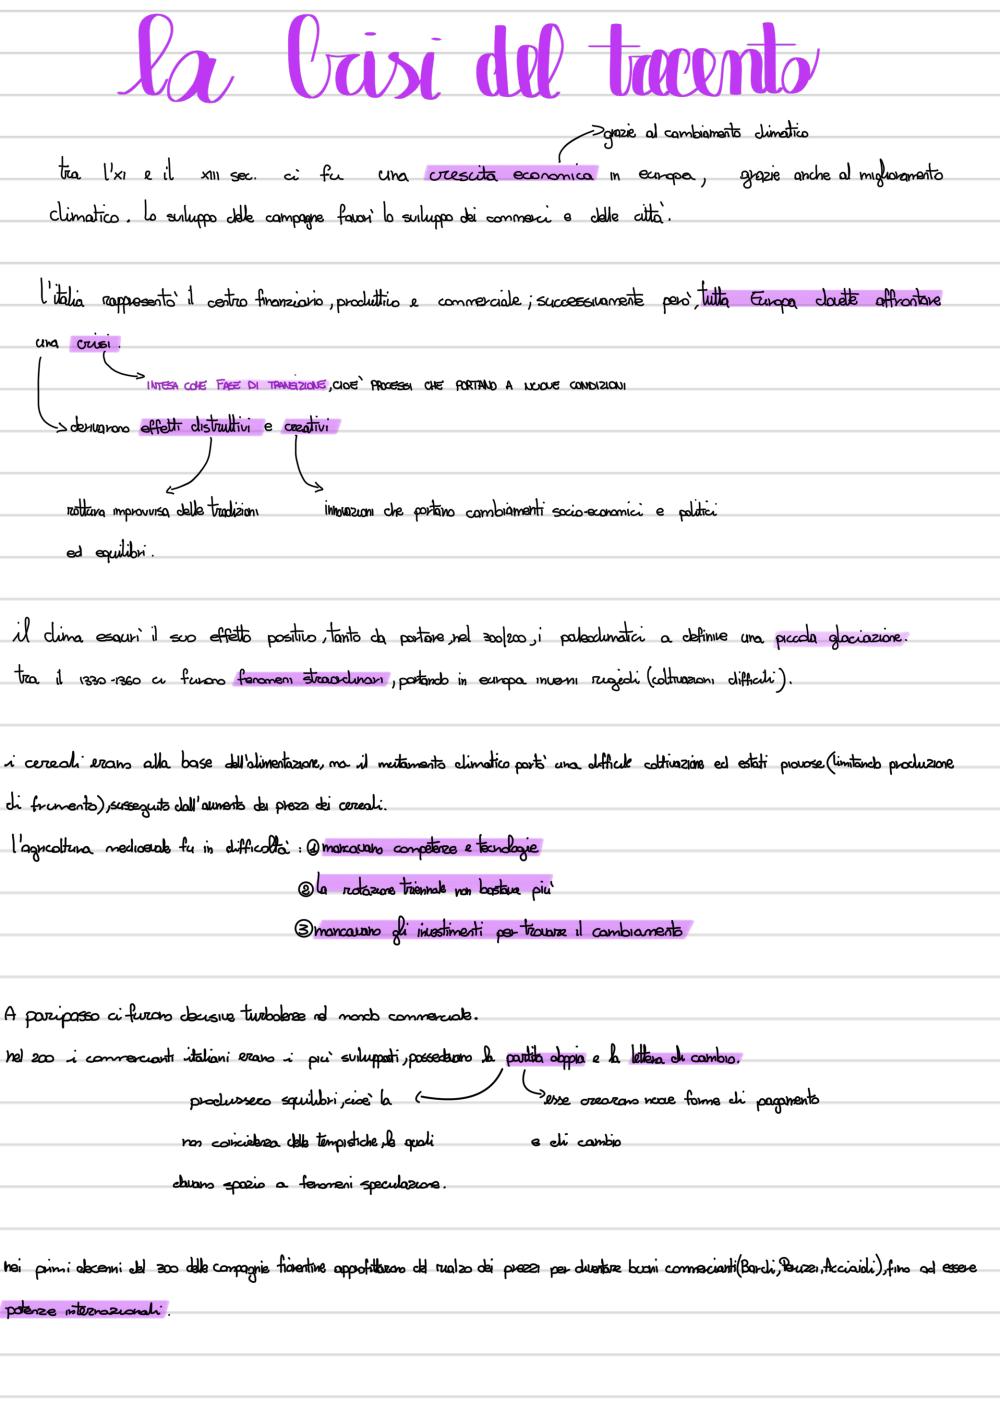 la Crisi del trecento
grazie al cambiamento climatico
tra l'XI e il XIII sec. ci fu una crescita economica in europa, grazie anche al miglioramento
climatico. Lo sviluppo delle campagne favorì lo sviluppo dei commerci e delle città.
l'italia rappresentò il centro finanziario, produttivo e commerciale; successivamente però, tutta Europa dovette affrontare
una crisi.
INTESA COME FASE DI TRANSIZIONE, CIOÈ PROCESSI CHE PORTANO A NUOVE CONDIZIONI
derivarono effetti distruttivi e creativi
rottura improvvisa delle tradizioni innovazioni che portano cambiamenti socio-economici e politici
ed equilibri.
il clima esaurì il suo effetto positivo, tanto da portare, nel 300/200, i paleoclimatici a definire una piccola glaciazione.
tra il 1330-1360 ci furono fenomeni straordinari, portando in europa inverni rigedi (coltivazioni difficili).
i cereali erano alla base dell'alimentazione, ma il mutamento climatico portò una difficile coltivazione ed estati piovose (limitando produzione
di frumento), susseguito dall'aumento dei prezzi dei cereali.
l'agricoltura medioevale fu in difficoltà: ① mancavano competenze e tecnologie
② la rotazione triennale non bastava più
③ mancavano gli investimenti per trovare il cambiamento
A paripasso ci furono decisive turbolenze nel mondo commerciale.
nel 200 i commercianti italiani erano i più sviluppati, possedevano la partita doppia e la lettera di cambio.
produssero squilibri, cioè la esse crearono nuove forme di pagamento
non coincidenza delle tempistiche, le quali e di cambio
davano spazio a fenomeni speculazione.
nei primi decenni del 300 delle compagnie fiorentine approfittarono del rialzo dei prezzi per diventare buoni commercianti (Bardi, Peruzzi, Acciaioli), fino ad essere
potenze internazionali.